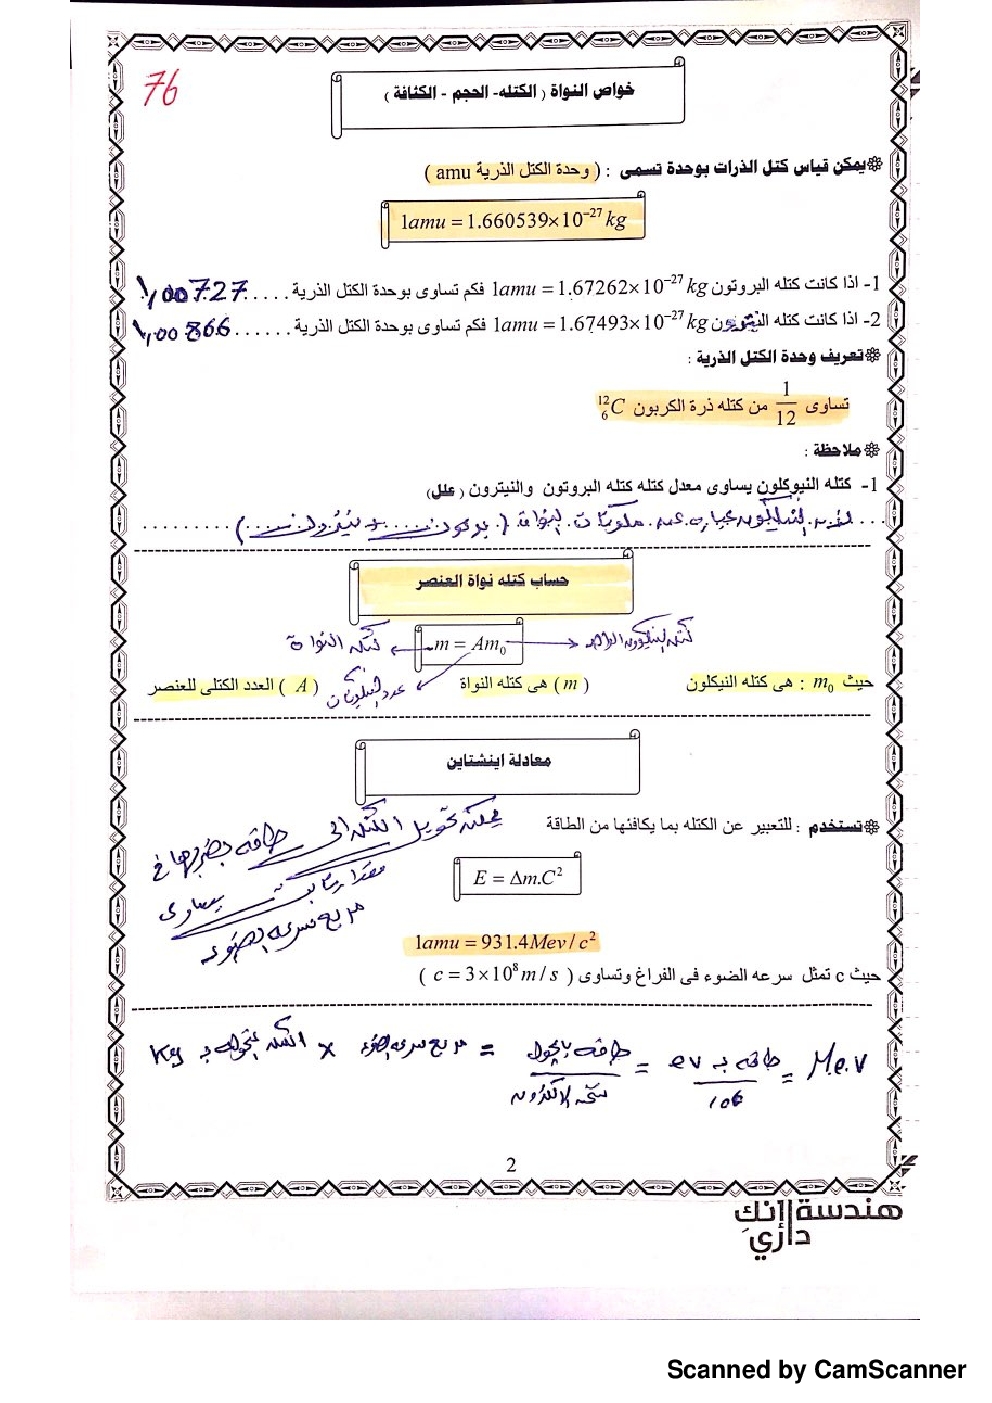 76
خواص النواة ( الكتله- الحجم - الكثافة )
يمكن قياس كتل الذرات بوحدة تسمى : ( وحدة الكتل الذرية amu )
1amu = 1.660539×10⁻²⁷ kg
1- اذا كانت كتله البروتون 1amu = 1.67262×10⁻²⁷ kg فكم تساوى بوحدة الكتل الذرية ..... 1,00727
2- اذا كانت كتله النيترون 1amu = 1.67493×10⁻²⁷ kg فكم تساوى بوحدة الكتل الذرية ...... 1,00866
تعريف وحدة الكتل الذرية :
تساوى 1/12 من كتله ذرة الكربون ¹²₆C
ملاحظة :
1- كتله النيوكلون يساوى معدل كتله كتله البروتون والنيترون ( علل)
لأن النيكليون عباره عن مكونات النواة ( بروتون + نيترون )
حساب كتله نواة العنصر
كتله النيكليون الواحد m = Am₀ كتله النواة
حيث m₀ : هى كتله النيكلون ( m ) هى كتله النواة ( A ) العدد الكتلى للعنصر
عدد النيكليونات
معادلة اينشتاين
تستخدم : للتعبير عن الكتله بما يكافئها من الطاقة
يمكن تحويل الكتله الى طاقه بضربها فى
مقدار ثابت يساوى
مربع سرعه الضوء
E = Δm.C²
1amu = 931.4Mev / c²
حيث c تمثل سرعه الضوء فى الفراغ وتساوى ( c = 3×10⁸ m / s )
Kg الكتله المتحوله بـ × مربع سرعه الضوء = طاقه بالجول / شحنه الالكترون = طاقه بـ ev / 10⁶ = M.e.V
2
هندسة إنك
داري
Scanned by CamScanner